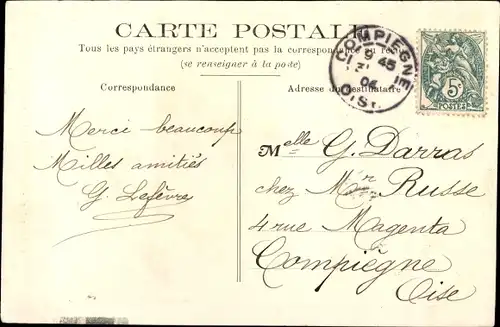 CARTE POSTALE
Tous les pays étrangers n'acceptent pas la correspondance au
(se renseigner à la poste)
Correspondance
Adresse du destinataire
COMPIEGNE
9 45
04
OISE
5c
POSTES
Merci beaucoup
Milles amitiés
G. Lefèvre
Melle G. Darras
chez Mr Russe
4 rue Magenta
Compiègne
Oise